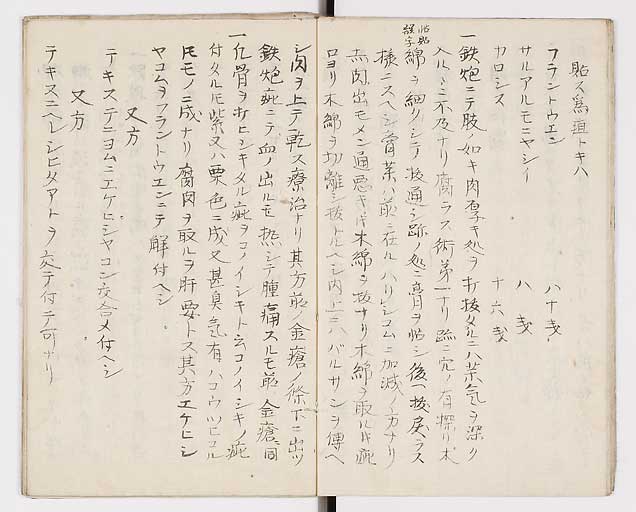 貼ス為直トキハ
フラントウエン 八十戔
サルアルモニヤシイ 八戔
カロシス 十六戔
一鉄炮ニテ肢ノ如キ肉厚キ処ヲ打抜タルニハ薬気ヲ深ク
入ルヽニ不及ナリ腐ラス術第一ナリ疏ニ穴ノ有探リ木
綿ヲ細クシテ抜通シ跡処ニ膏ヲ貼シ後ヘ抜戻ラス
様ニスヘシ膏薬ハ前ニ在ルハリシコムニ加減ノ方ナリ
赤肉出モメン通悪キハ木綿ヲ抜ナリ木綿ヲ取ル疵
口ヨリ木綿ヲ切離シ抜トルヘシ内上ニハバルサンヲ傳ヘ
シ肉ヲ上テ乾ス療治ナリ其方前ノ金瘡ノ條下ニ出ツ
鉄炮疵ニテ血ノ出ルモ熱シテ腫痛スルモ前金瘡ニ同
一凡骨ヲ打ヒシキタル疵ヲコノイシキト云コノイシキノ疵
付タル圧紫又ハ栗色ニ成又甚臭気有ハコウツヒユル
モノニ成ナリ腐肉ヲ取ルヲ肝要トス其方エケヒシ
ヤコムヲフラントウエンニテ解付ヘシ
又方
テキステニヨムニエケヒシヤコン交合メ付ヘシ
又方
テキスニヘレシヒタアトヲ交テ付テ可ナリ